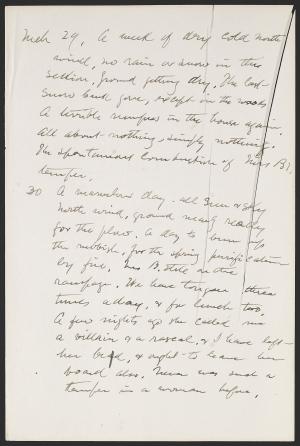 Mch 29, A week of dry cold north
wind, no rain or snow in this
section. Ground getting dry. The last
snow bank gone, except in the woods
A terrible rumpus in the house again.
All about nothing, simply nothing.
The spontaneous combustion of Mrs B's,
temper.
30 A marvelous day. All sun & sky
North wind, ground nearly ready
for the plow. A day to burn up
the rubbish, for the spring purification
by fire. Mrs B. still on the
rampage. We have tongue three
times a day, & for lunch too.
A few nights ago she called me
a villain & a rascal, & I have left
her bed, & ought to leave her
board also. Never was such a
temper in a woman before.